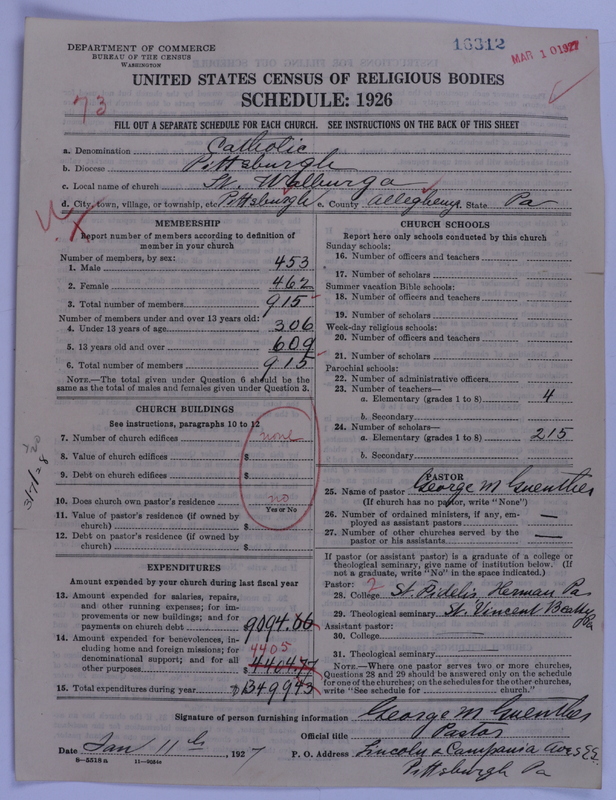 DEPARTMENT OF COMMERCE
BUREAU OF THE CENSUS
WASHINGTON
16312
MAR 10 1927
UNITED STATES CENSUS OF RELIGIOUS BODIES
SCHEDULE: 1926
73
FILL OUT A SEPARATE SCHEDULE FOR EACH CHURCH. SEE INSTRUCTIONS ON THE BACK OF THIS SHEET
a. Denomination Catholic
b. Diocese Pittsburgh
c. Local name of church St. Walburga
d. City, town, village, or township, etc. Pittsburgh e. County Allegheny State Pa
MEMBERSHIP
Report number of members according to definition of
member in your church
Number of members, by sex:
1. Male 453
2. Female 462
3. Total number of members 915
Number of members under and over 13 years old:
4. Under 13 years of age 306
5. 13 years old and over 609
6. Total number of members 915
NOTE.—The total given under Question 6 should be the
same as the total of males and females given under Question 3.
CHURCH BUILDINGS
See instructions, paragraphs 10 to 12
7. Number of church edifices none
8. Value of church edifices $
9. Debt on church edifices $
10. Does church own pastor's residence no
Yes or No
11. Value of pastor's residence (if owned by
church) $
12. Debt on pastor's residence (if owned by
church) $
EXPENDITURES
Amount expended by your church during last fiscal year
13. Amount expended for salaries, repairs,
and other running expenses; for im-
provements or new buildings; and for
payments on church debt 9094.66
14. Amount expended for benevolences, in-
cluding home and foreign missions; for
denominational support; and for all
other purposes $ 4404.77
4405
15. Total expenditures during year $1349943
CHURCH SCHOOLS
Report here only schools conducted by this church
Sunday schools:
16. Number of officers and teachers
17. Number of scholars
Summer vacation Bible schools:
18. Number of officers and teachers
19. Number of scholars
Week-day religious schools:
20. Number of officers and teachers
21. Number of scholars
Parochial schools:
22. Number of administrative officers
23. Number of teachers—
a. Elementary (grades 1 to 8) 4
b. Secondary
24. Number of scholars—
a. Elementary (grades 1 to 8) 215
b. Secondary
PASTOR
25. Name of pastor George M Guenther
(If church has no pastor, write "None")
26. Number of ordained ministers, if any, em-
ployed as assistant pastors —
27. Number of other churches served by the
pastor or his assistants —
If pastor (or assistant pastor) is a graduate of a college or
theological seminary, give name of institution below. (If
not a graduate, write "No" in the space indicated.)
Pastor: 2
28. College St. Fidelis Herman Pa
29. Theological seminary St. Vincent Beatty Pa
Assistant pastor:
30. College
31. Theological seminary
NOTE.—Where one pastor serves two or more churches,
Questions 28 and 29 should be answered only on the schedule
for one of the churches; on the schedules for the other churches,
write "See schedule for church."
Signature of person furnishing information George M Guenther
Official title Pastor
Date Jan 11th, 1927 P. O. Address Lincoln & Campania Aves E.E.
Pittsburgh Pa
8—5518a